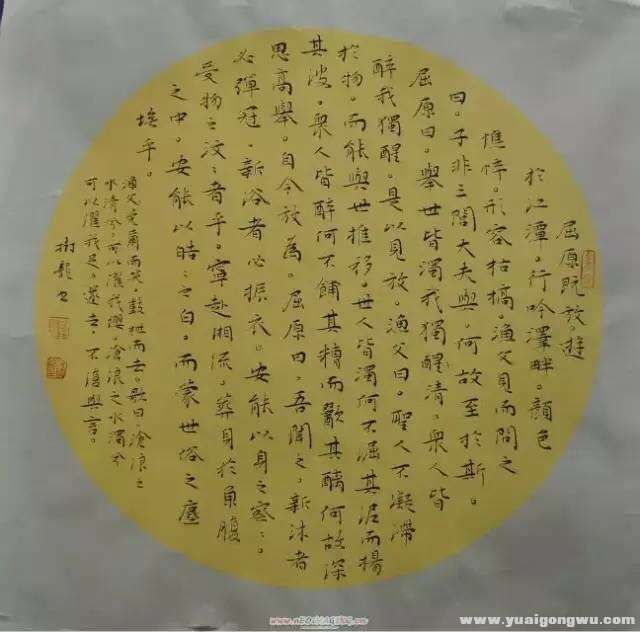 屈原既放。遊
於江潭。行吟澤畔。顏色
憔悴。形容枯槁。漁父見而問之
曰。子非三閭大夫與。何故至於斯。
屈原曰。舉世皆濁我獨醒清。衆人皆
醉我獨醒。是以見放。漁父曰。聖人不凝滯
於物。而能與世推移。世人皆濁何不淈其泥而揚
其波。衆人皆醉何不餔其糟而歠其醨何故深
思高舉。自令放為。屈原曰。吾聞之。新沐者
必彈冠。新浴者必振衣。安能以身之察〻。
受物之汶〻者乎。寧赴湘流。葬身於魚腹
之中。安能以皓〻之白。而蒙世俗之塵
埃乎。
漁父莞爾而笑。鼓枻而去。歌曰。滄浪之
水清兮。可以濯我纓。滄浪之水濁兮
可以濯我足。遂去。不復與言。
樹龍書
www.yuaigongwu.com